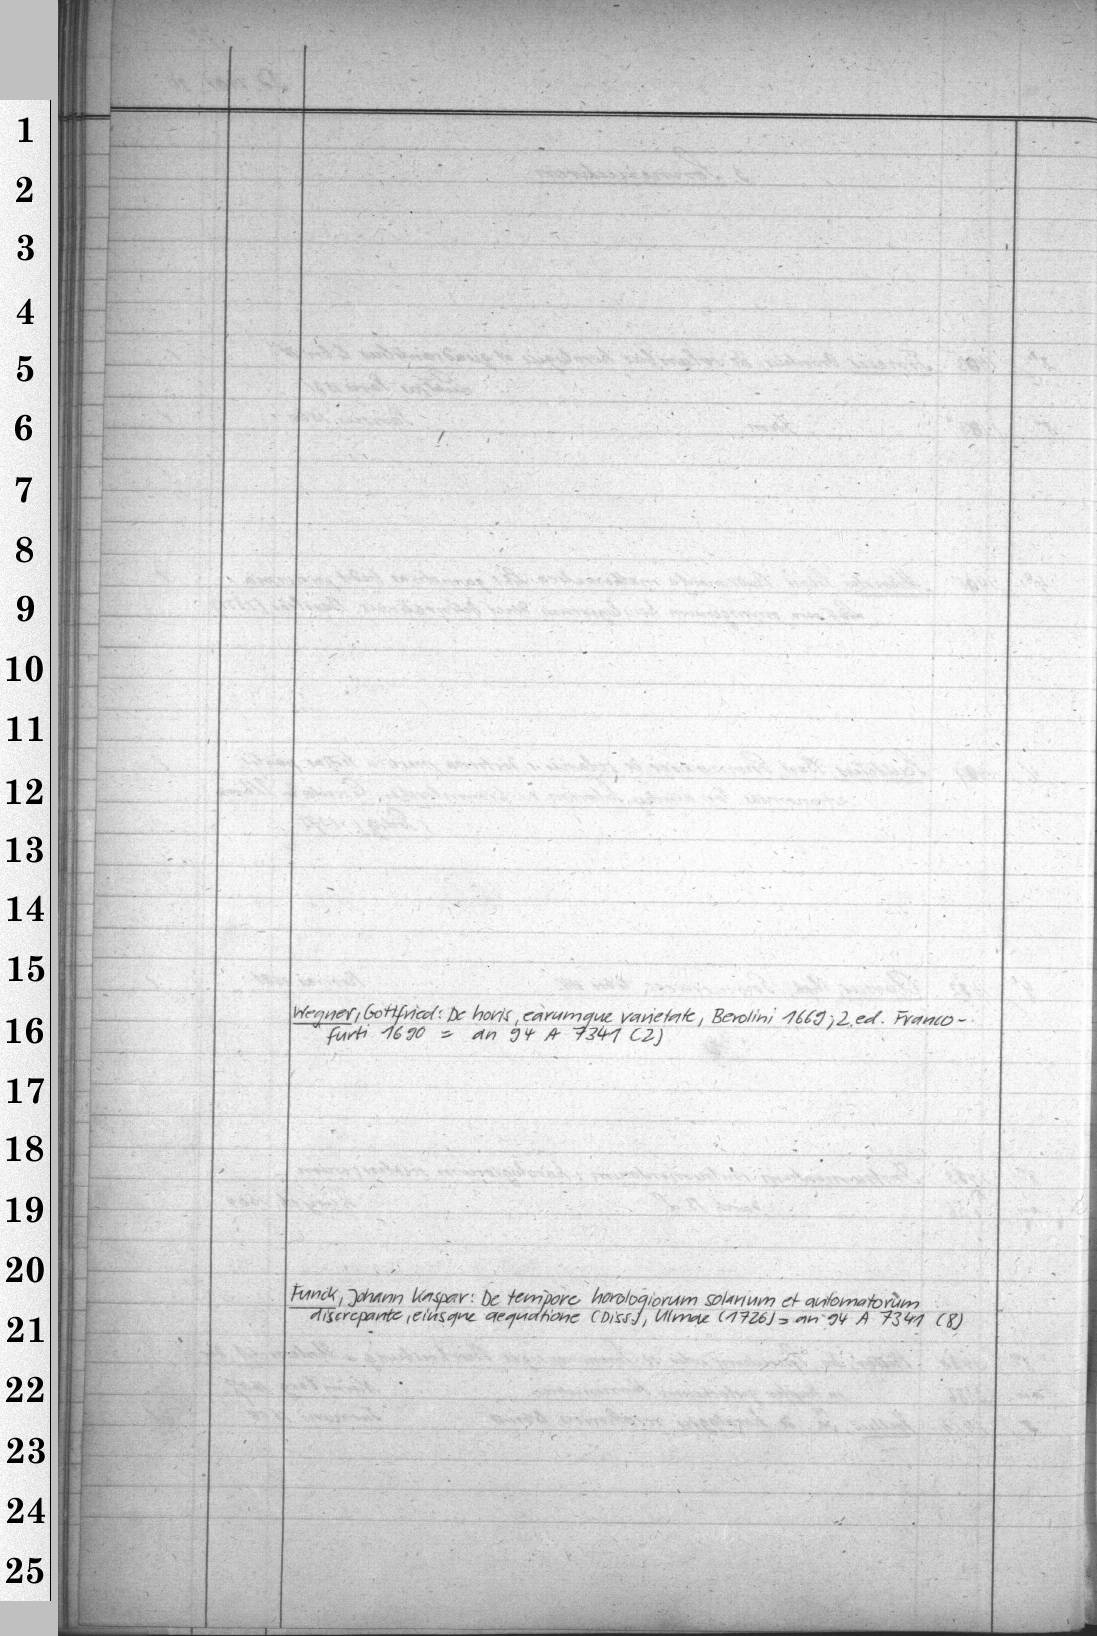 1
2
3
4
5
6
7
8
9
10
11
12
13
14
15
Wegner, Gottfried: De horis, earumque varietate, Berolini 1669; 2. ed. Franco-
16
furti 1690 = an 94 A 7341 (2)
17
18
19
20
Funck, Johann Kaspar: De tempore horologiorum solarium et automatorum
discrepante, eiusque aequatione (Diss.), Ulmae (1726) = an 94 A 7341 (8)
21
22
23
24
25